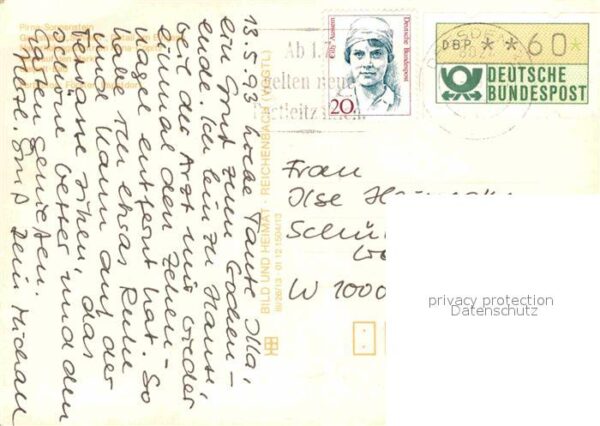 13.5.93 Liebe Tante Illa,
ein Gruß zum Wochen-
ende. Ich bin zu Hause,
weil der Arzt mir wieder
einmal den Zehen-
nagel entfernt hat. So
habe ich etwas Ruhe
und kann auf der
Terrasse sitzen, das
schöne Wetter und den
Garten genießen.
Herzl. Gruß Dein Michael
Pirna-Sonnenstein
BILD UND HEIMAT · REICHENBACH (VOGTL)
III/26/13 01 12 1504/13
Ab 1.
gelten neue
Postleitzahlen
Elly
Deutsche Bundespost
20
DBP * * 60 *
DEUTSCHE
BUNDESPOST
Frau
Ilse
W 1000
privacy protection
Datenschutz